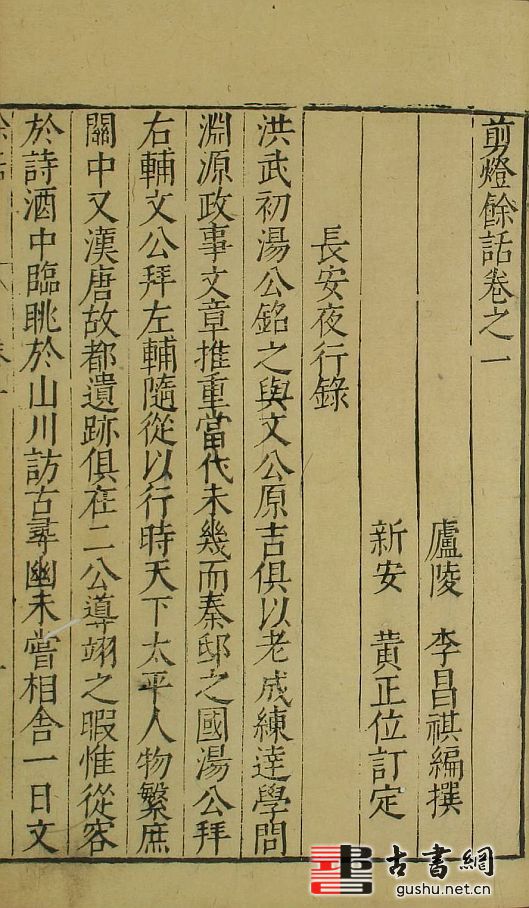 剪燈餘話卷之一
廬陵　李昌祺編撰
新安　黃正位訂定
長安夜行錄
洪武初湯公銘之與文公原吉俱以老成練達學問
淵源政事文章推重當代未幾而秦邸之國湯公拜
右輔文公拜左輔隨從以行時天下太平人物繁庶
關中又漢唐故都遺跡俱在二公導翊之暇惟從容
於詩酒中臨眺於山川訪古尋幽未嘗相舍一日文
古書網
gushu.net.cn